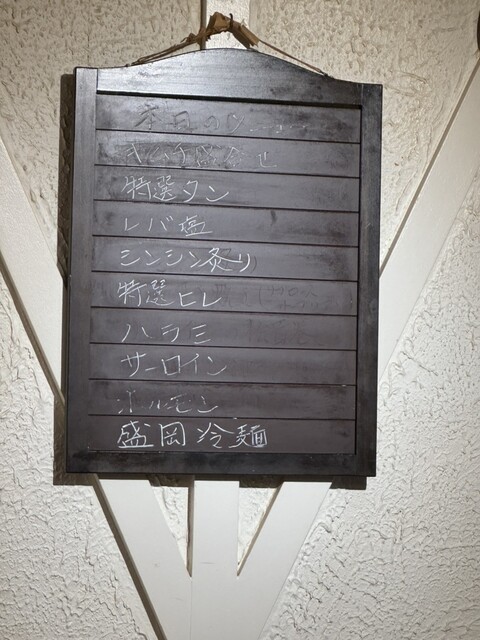 本日の
キムチ盛合せ
特選タン
レバ塩
シンシン炙り
特選ヒレ
ハラミ
サーロイン
ホルモン
盛岡冷麺